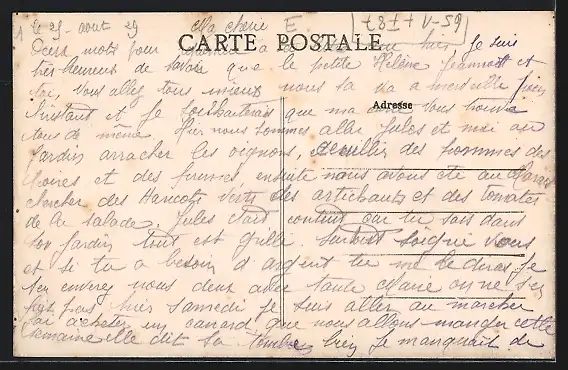 le 25 aout 29
Ma chérie E
CARTE POSTALE
Deux mots pour a la hier, Je suis
très heureux de savoir que la petite Hélène Jeannot et
toi, vous allez tous mieux nous sa va a merveille pour
l'instant et je souhaiterais que ma vous trouve
Adresse
tous de même. Hier nous sommes aller Jules et moi au
Jardin arracher les oignons, cueillir des pommes des
Poires et des prunes, ensuite nous avons été au Marais
chercher des Haricots verts des artichauts et des tomates
de la salade. Jules tard content car tu sais dans
son Jardin tout est grillé. surtout soigne vous
et si tu a besoin d argent tu me le diras, Je
t'en enverez nous deux avec tante Marie on ne s'en
fait pas hier samedi Je suis aller au marcher
j'ai acheter un canard que nous allons manger cette
semaine elle dit sa tombe bien Je manquait de